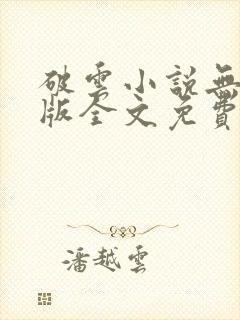 破雲小說無
版全文免費
潘越雲